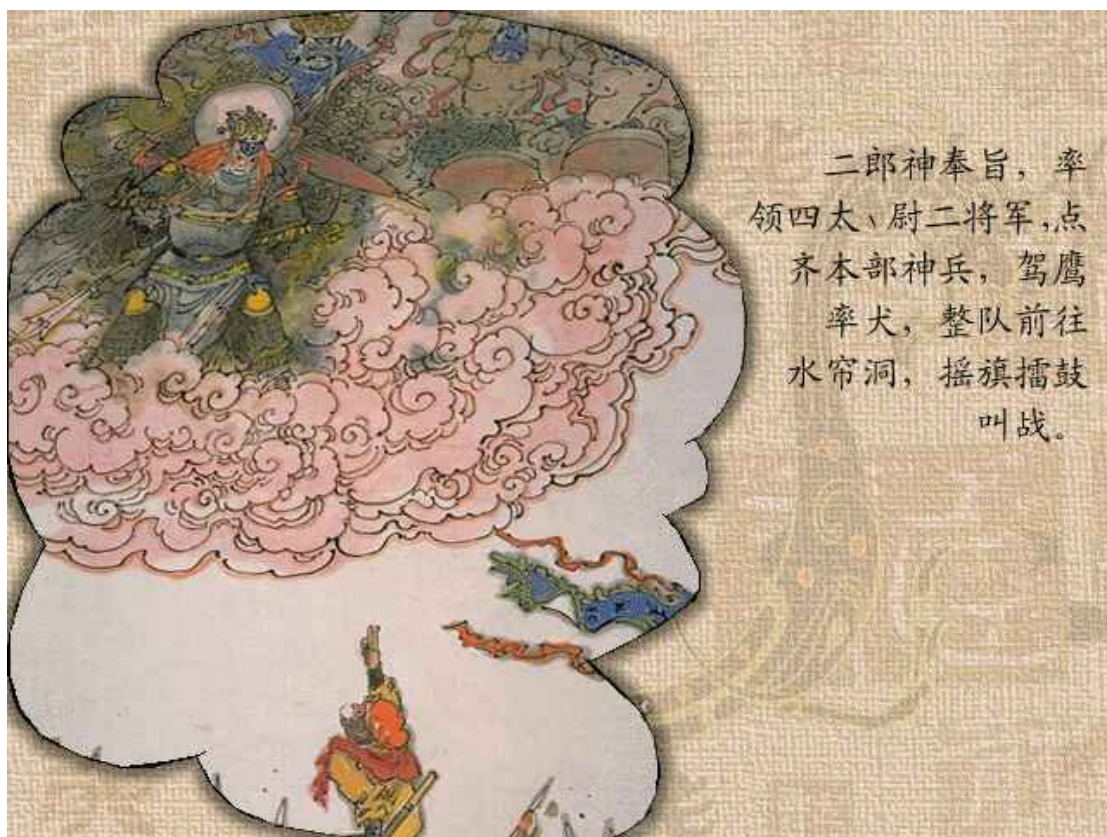 二郎神奉旨，率
领四太、尉二将军，点
齐本部神兵，驾鹰
率犬，整队前往
水帘洞，摇旗擂鼓
叫战。